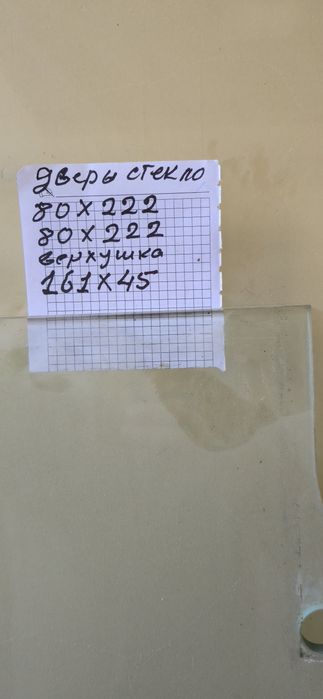 Дверы стекло
80 х 222
80 х 222
верхушка
161 х 45